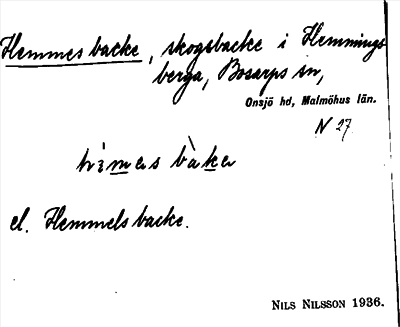 Hemmes backe, skogsbacke i Hemmings
berga, Bosarps sn,
Onsjö hd, Malmöhus län.
N 27
hìmas bàka
el. Hemmelsbacke.
NILS NILSSON 1936.